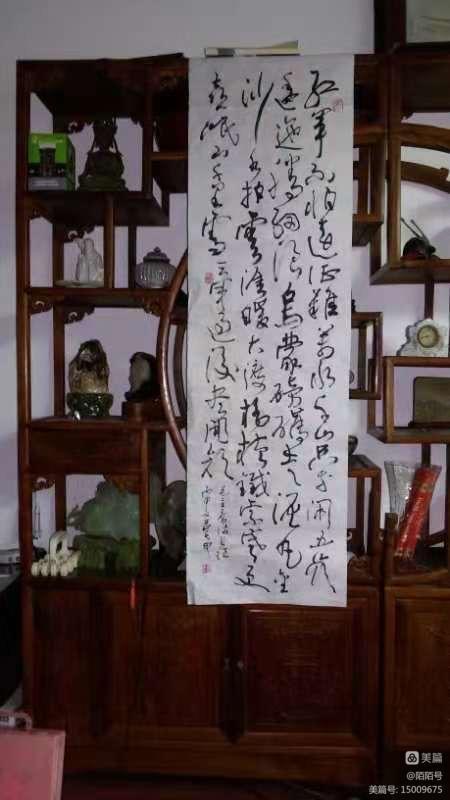 红军不怕遠征難萬水千山只等闲五嶺
逶迤腾细浪烏蒙磅礴走泥丸金
沙水拍雲崖暖大渡橋横鐵索寒更
喜岷山千里雪三军过後尽開颜
美篇
@陌陌号
美篇号: 15009675